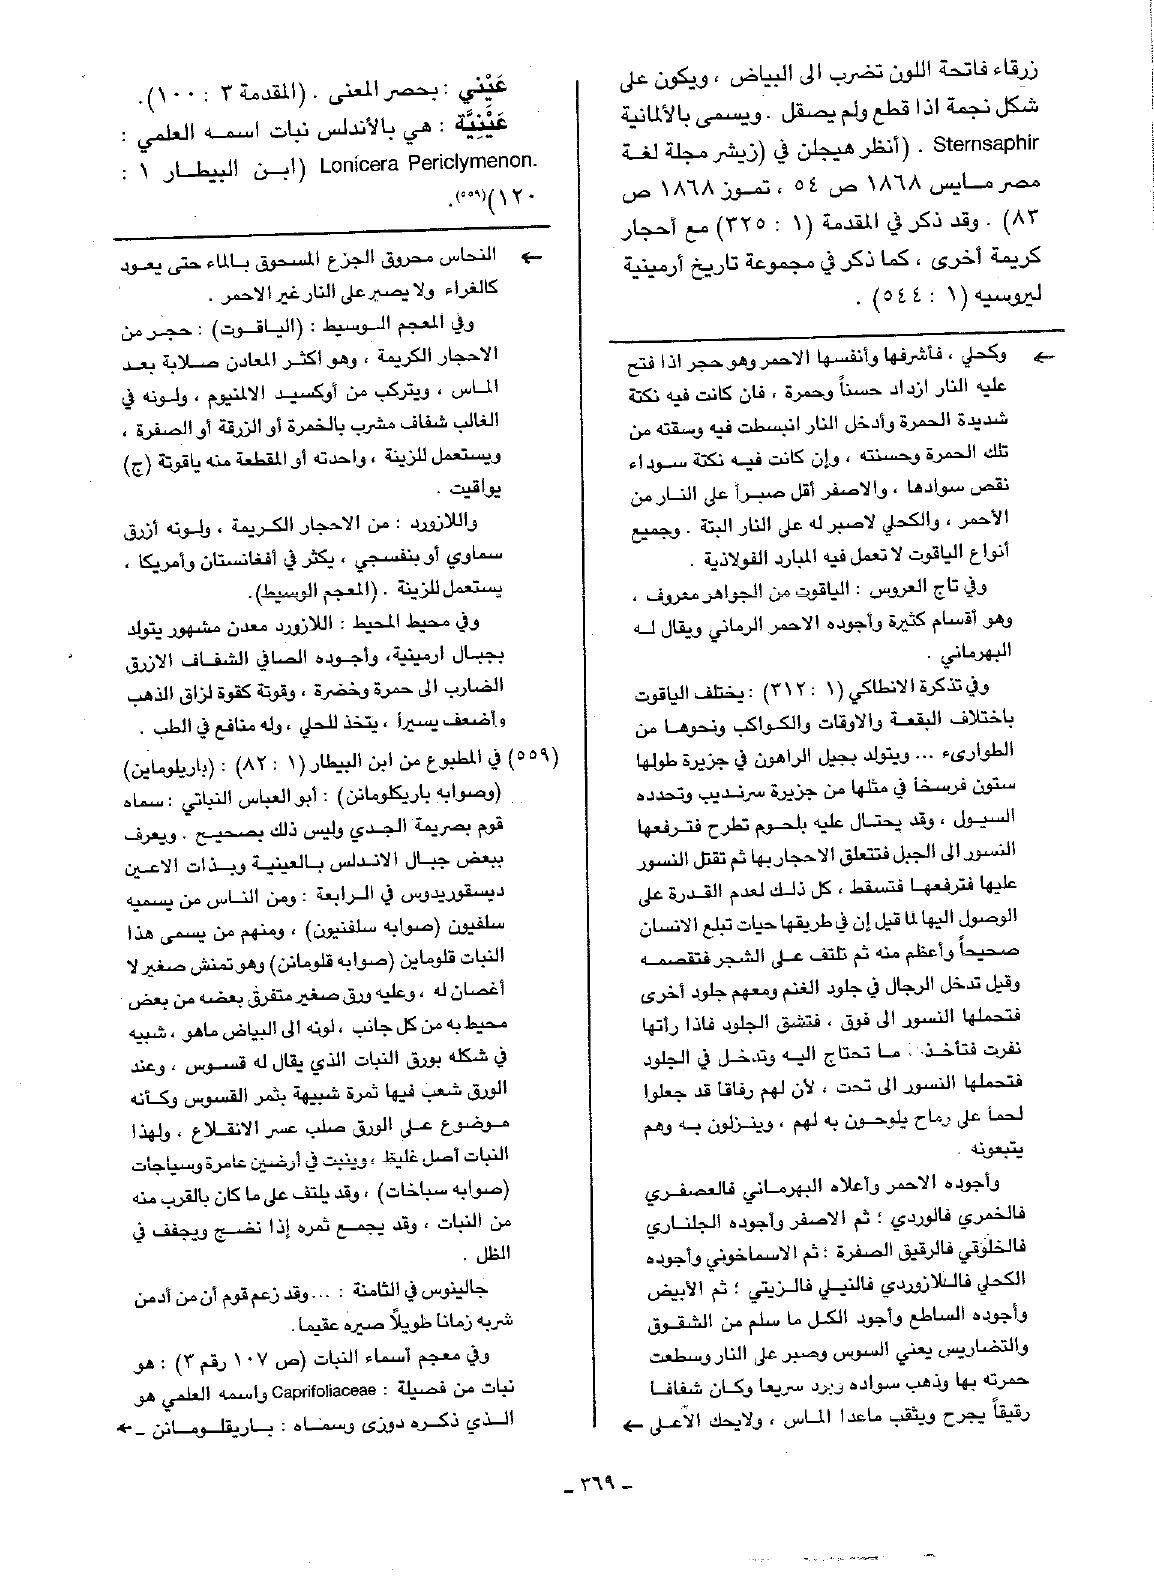 زرقاء فاتحة اللون تضرب الى البياض ، ويكون على
شكل نجمة اذا قطع ولم يصقل . ويسمى بالألمانية
Sternsaphir . (أنظر هيجلن في (زيشر مجلة لغة
مصر مايس ١٨٦٨ ص ٥٤ ، تموز ١٨٦٨ ص
٨٣) . وقد ذكر في المقدمة (١ : ٣٢٥) مع أحجار
كريمة أخرى ، كما ذكر في مجموعة تاريخ أرمينية
لبروسيه (١ : ٥٤٤) .
← وكحلي ، فأشرفها وأنفسها الاحمر وهو حجر اذا فتح
عليه النار ازداد حسناً وحمرة ، فان كانت فيه نكتة
شديدة الحمرة وأدخل النار انبسطت فيه وسقته من
تلك الحمرة وحسنته ، وإن كانت فيه نكتة سوداء
نقص سوادها ، والاصفر أقل صبراً على النار من
الأحمر ، والكحلي لاصبر له على النار البتة . وجميع
أنواع الياقوت لا تعمل فيه المبارد الفولاذية .
وفي تاج العروس : الياقوت من الجواهر معروف ،
وهو أقسام كثيرة وأجوده الاحمر الرماني ويقال له
البهرماني .
وفي تذكرة الانطاكي (١ : ٣١٢) : يختلف الياقوت
باختلاف البقعة والاوقات والكواكب ونحوها من
الطوارىء ... ويتولد بجبل الراهون في جزيرة طولها
ستون فرسخاً في مثلها من جزيرة سرنديب وتحدده
السيول ، وقد يحتال عليه بلحوم تطرح فترفعها
النسور الى الجبل فتتعلق الاحجار بها ثم تقتل النسور
عليها فترفعها فتسقط ، كل ذلك لعدم القدرة على
الوصول اليها لما قيل إن في طريقها حيات تبلع الانسان
صحيحاً وأعظم منه ثم تلتف على الشجر فتقصمه
وقيل تدخل الرجال في جلود الغنم ومعهم جلود أخرى
فتحملها النسور الى فوق ، فتشق الجلود فاذا رأتها
نفرت فتأخذ ما تحتاج اليه وتدخل في الجلود
فتحملها النسور الى تحت ، لأن لهم رفاقا قد جعلوا
لحما على رماح يلوحون به لهم ، وينزلون به وهم
يتبعونه .
وأجوده الاحمر وأعلاه البهرماني فالعصفري
فالخمري فالوردي ؛ ثم الاصفر وأجوده الجلناري
فالخلوقي فالرقيق الصفرة ؛ ثم الاسماخوني وأجوده
الكحلي فاللازوردي فالنيلي فالزيتي ؛ ثم الأبيض
وأجوده الساطع وأجود الكل ما سلم من الشقوق
والتضاريس يعني السوس وصبر على النار وسطعت
حمرته بها وذهب سواده وبرد سريعا وكان شفافا
رقيقاً يجرح ويثقب ماعدا الماس ، ولايحك الأعلى ←
عَيْنِي : بحصر المعنى . (المقدمة ٣ : ١٠٠).
عَيْنِيَّة : هي بالأندلس نبات اسمه العلمي :
Lonicera Periclymenon. (ابن البيطار ١ :
١٢٠)(٥٥٩).
← النحاس محروق الجزع المسحوق بالماء حتى يعود
كالغراء ولا يصبر على النار غير الاحمر .
وفي المعجم الوسيط : (الياقوت) : حجر من
الاحجار الكريمة ، وهو أكثر المعادن صلابة بعد
الماس ، ويتركب من أوكسيد الالمنيوم ، ولونه في
الغالب شفاف مشرب بالحمرة أو الزرقة أو الصفرة ،
ويستعمل للزينة ، واحدته أو القطعة منه ياقوتة (ج)
يواقيت .
واللازورد : من الاحجار الكريمة ، ولونه أزرق
سماوي أو بنفسجي ، يكثر في أفغانستان وأمريكا ،
يستعمل للزينة . (المعجم الوسيط).
وفي محيط المحيط : اللازورد معدن مشهور يتولد
بجبال ارمينية، وأجوده الصافي الشفاف الازرق
الضارب الى حمرة وخضرة ، وقوتة كقوة لزاق الذهب
وأضعف يسيراً ، يتخذ للحلي ، وله منافع في الطب .
(٥٥٩) في المطبوع من ابن البيطار (١ : ٨٢) : (باريلوماين)
(وصوابه باريكلومانن) : أبو العباس النباتي : سماه
قوم بصريمة الجدي وليس ذلك بصحيح . ويعرف
ببعض جبال الاندلس بالعينية وبذات الاعين
ديسقوريدوس في الرابعة : ومن الناس من يسميه
سلفيون (صوابه سلفنيون) ، ومنهم من يسمى هذا
النبات قلوماين (صوابه قلومانن) وهو تمنش صغير لا
أغصان له ، وعليه ورق صغير متفرق بعضه من بعض
محيط به من كل جانب ، لونه الى البياض ماهو ، شبيه
في شكله بورق النبات الذي يقال له قسوس ، وعند
الورق شعب فيها ثمرة شبيهة بثمر القسوس وكأنه
موضوع على الورق صلب عسر الانقلاع ، ولهذا
النبات أصل غليظ ، وينبت في أرضين عامرة وسياجات
(صوابه سباخات) ، وقد يلتف على ما كان بالقرب منه
من النبات ، وقد يجمع ثمره إذا نضج ويجفف في
الظل .
جالينوس في الثامنة : ...وقد زعم قوم أن من أدمن
شربه زمانا طويلاً صيره عقيما.
وفي معجم أسماء النبات (ص ١٠٧ رقم ٣) : هو
نبات من فصيلة : Caprifoliaceae واسمه العلمي هو
الذي ذكره دوزى وسماه : باريقلومانن - ←
- ٣٦٩ -